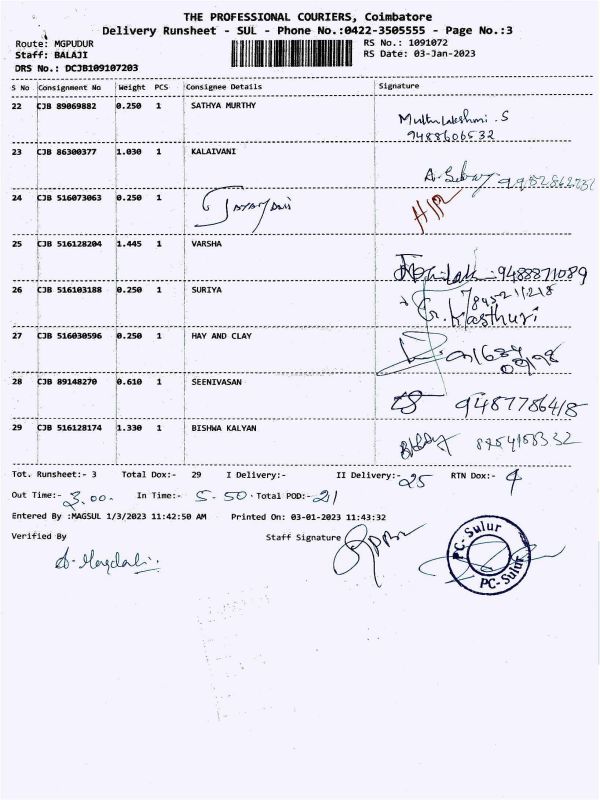 THE PROFESSIONAL COURIERS, Coimbatore
Delivery Runsheet - SUL - Phone No.:0422-3505555 - Page No.:3
Route: MGPUDUR
RS No.: 1091072
Staff: BALAJI
RS Date: 03-Jan-2023
DRS No.: DCJB109107203
S No Consignment No Weight PCS Consignee Details Signature
22 CJB 89069882 0.250 1 SATHYA MURTHY
Muthulakshmi .S
9488606532
23 CJB 86300377 1.030 1 KALAIVANI
24 CJB 516073063 0.250 1
25 CJB 516128204 1.445 1 VARSHA
9488871089
26 CJB 516103188 0.250 1 SURIYA
G. Kasthuri
27 CJB 516030596 0.250 1 HAY AND CLAY
28 CJB 89148270 0.610 1 SEENIVASAN
9487786418
29 CJB 516128174 1.330 1 BISHWA KALYAN
Tot. Runsheet:- 3 Total Dox:- 29 I Delivery:- II Delivery:- 25 RTN Dox:- 4
Out Time:- 3.00. In Time:- 5-50. Total POD:- 21
Entered By :MAGSUL 1/3/2023 11:42:50 AM Printed On: 03-01-2023 11:43:32
Verified By Staff Signature
PC-Sulur
PC-Sulur